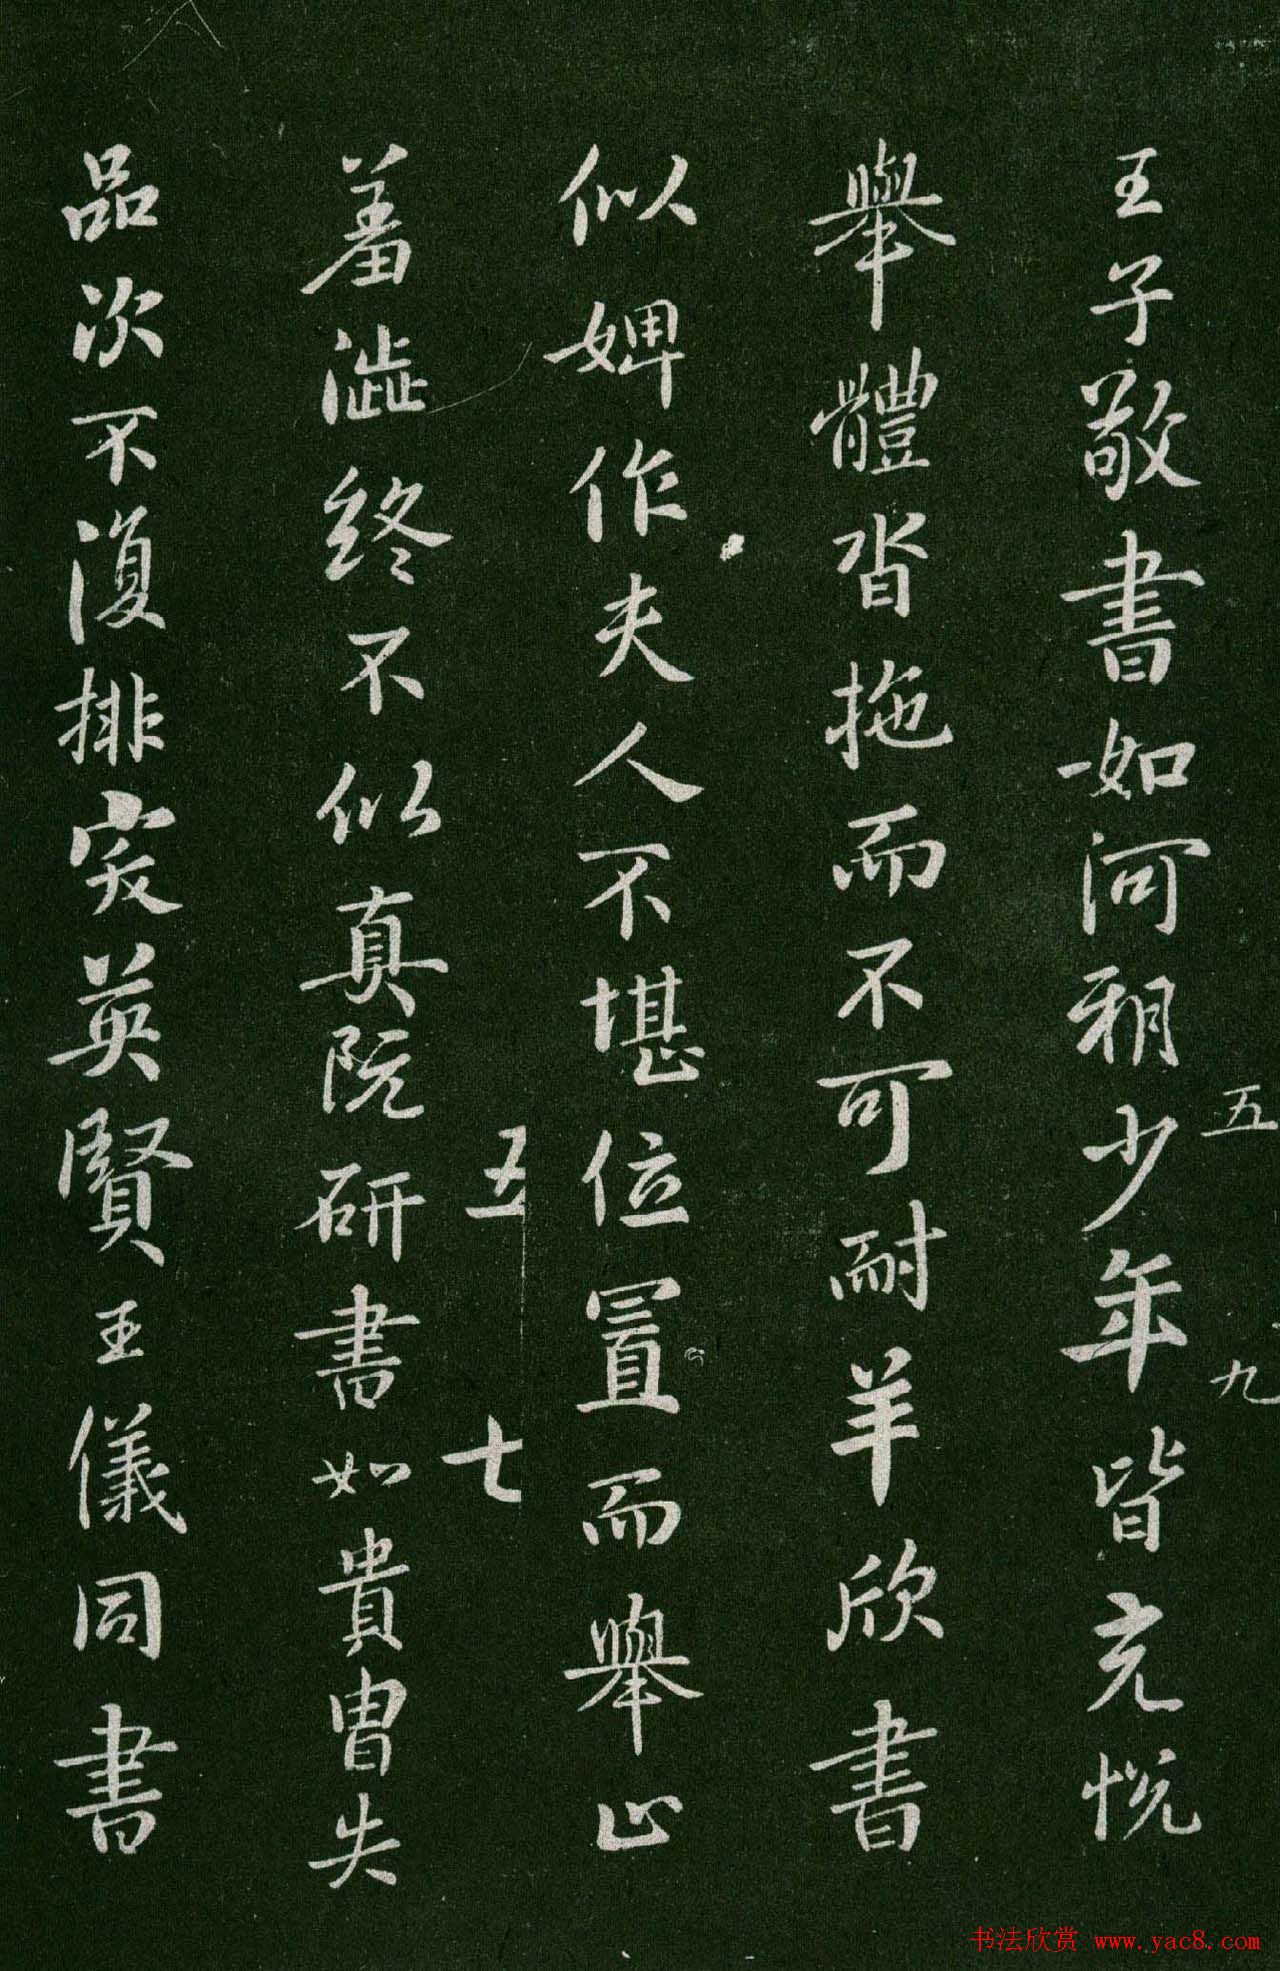 王子敬書如河朔少年皆充悅
舉體沓拖而不可耐羊欣書
似婢作夫人不堪位置而舉止
羞澁終不似真阮研書如貴胄失
品次不復排突英賢王儀同書
五
九
五
七
书法欣赏 www.yac8.com